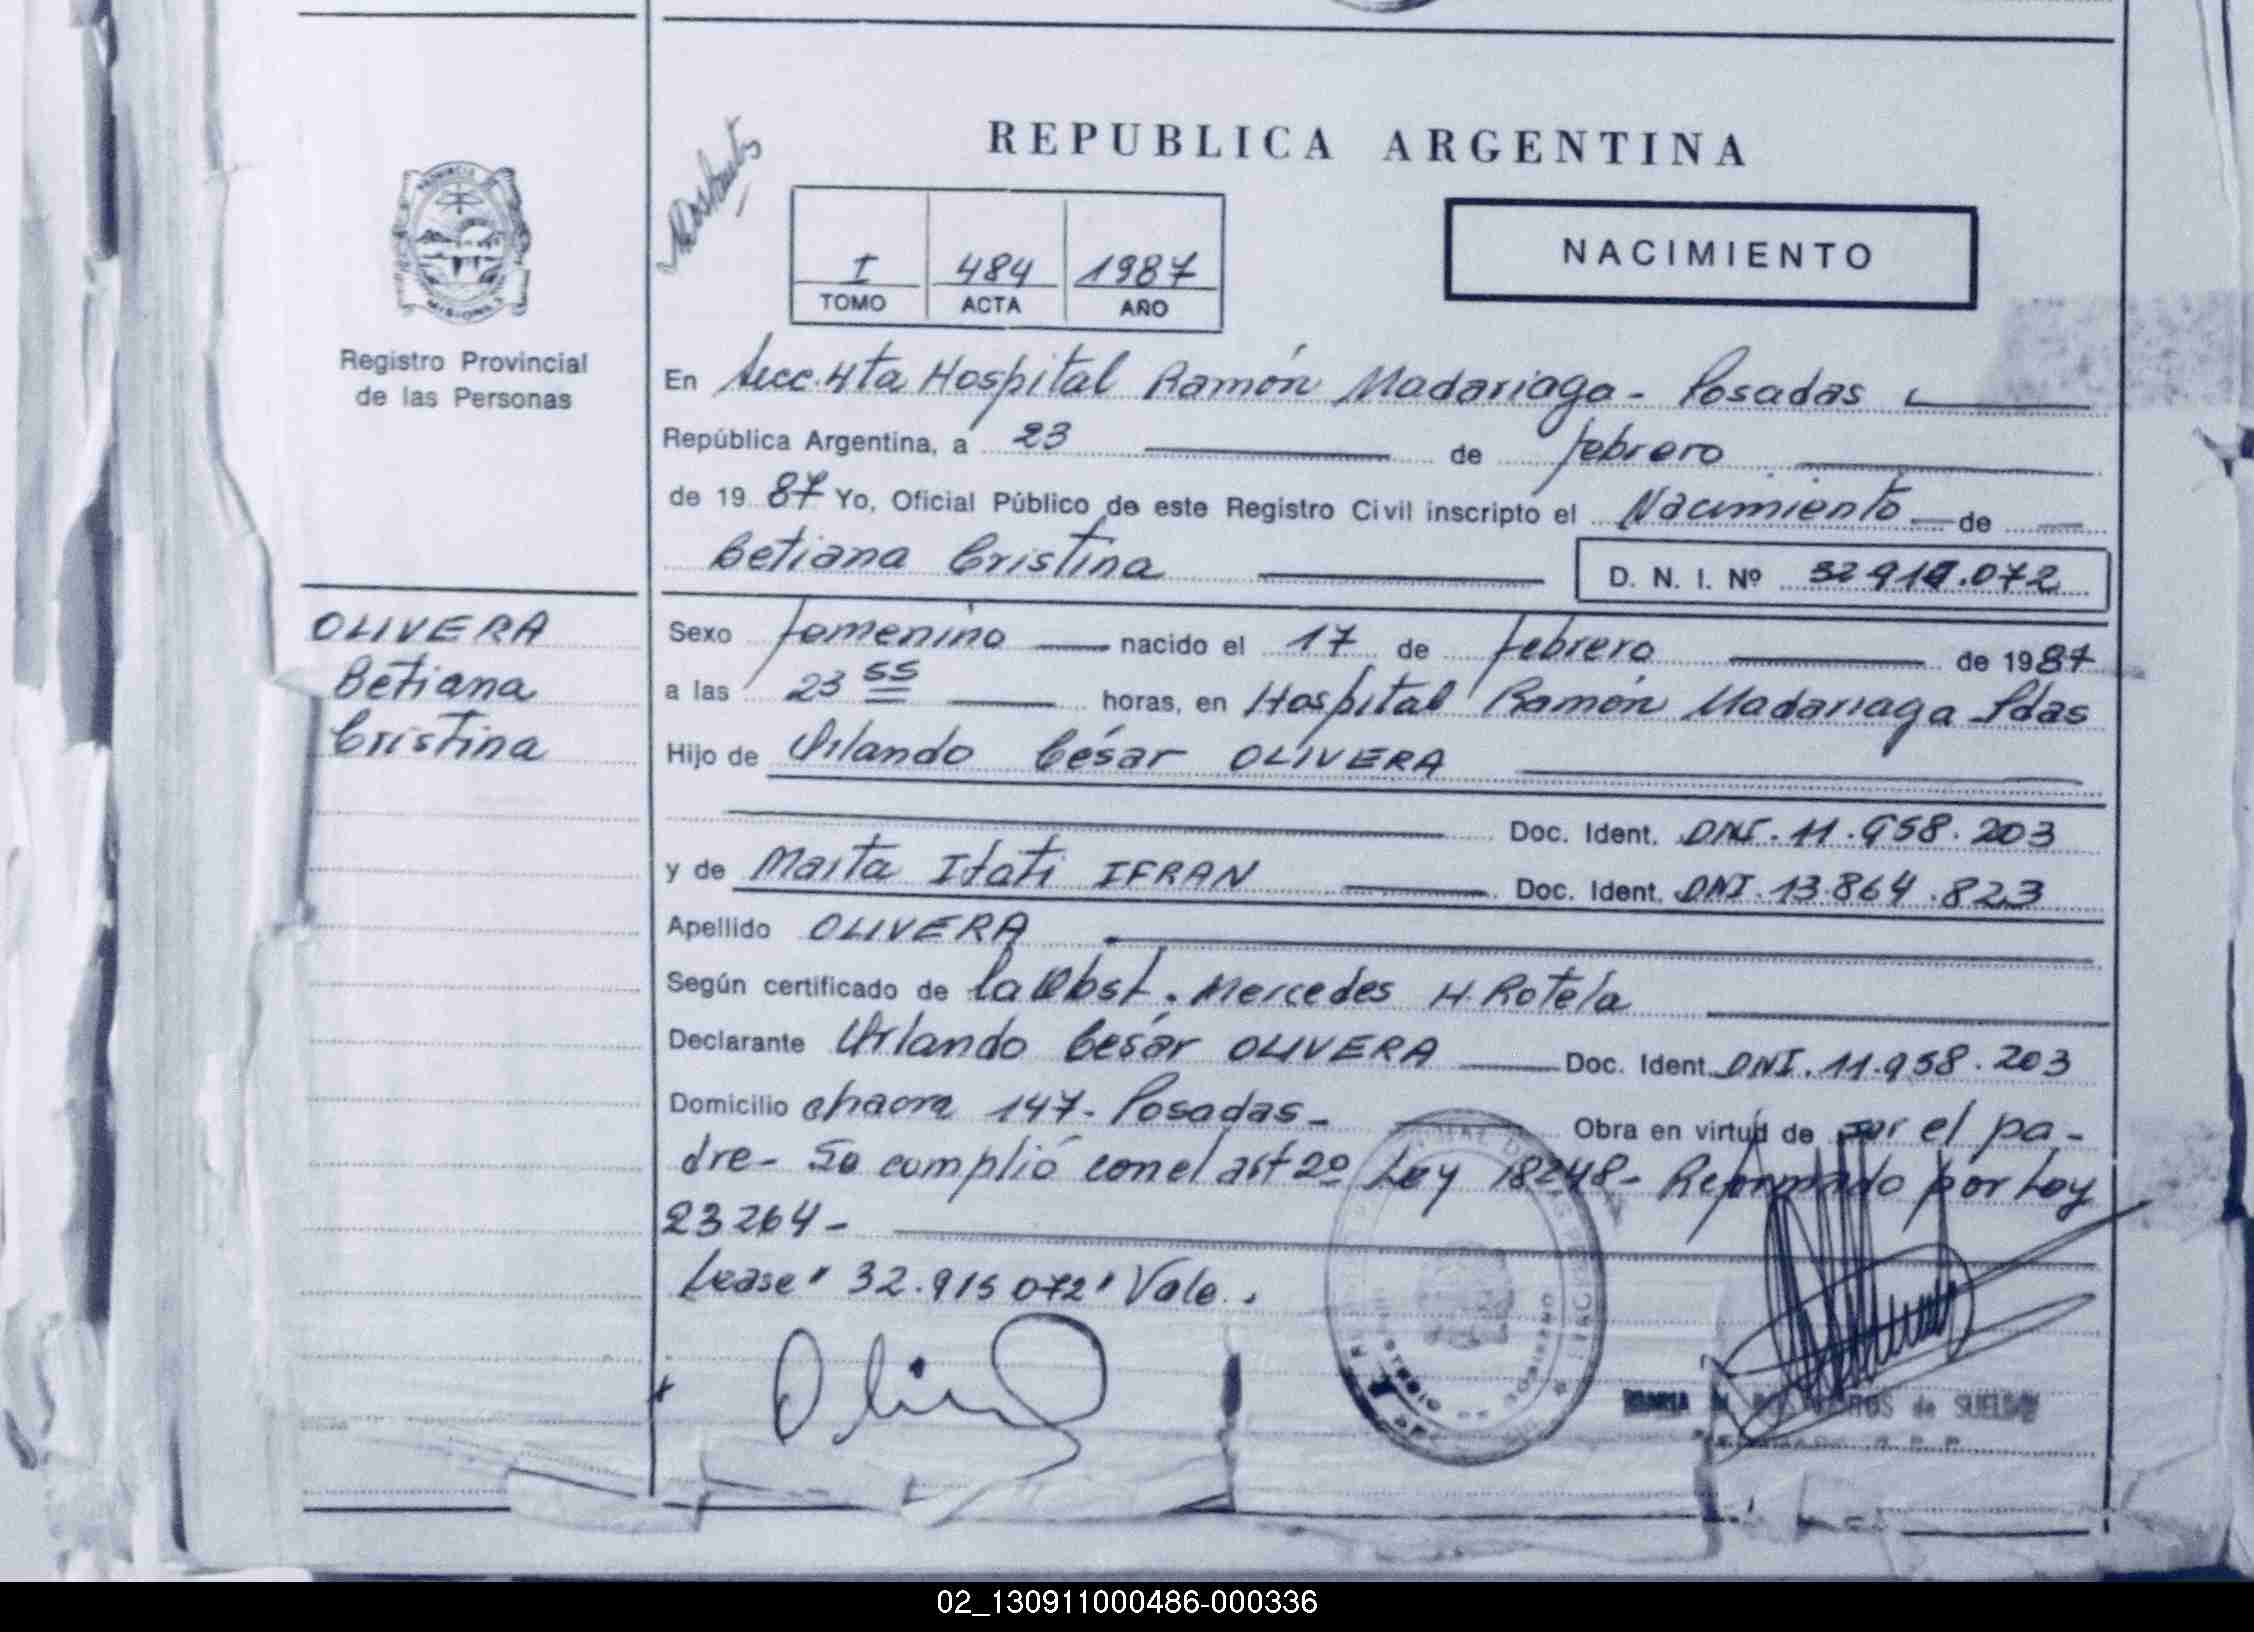 REPUBLICA ARGENTINA
I 484 1987
TOMO ACTA AÑO
NACIMIENTO
Registro Provincial
de las Personas
En Secc. 4ta Hospital Ramón Madariaga - Posadas
República Argentina, a 23 de febrero
de 1987 Yo, Oficial Público de este Registro Civil inscripto el Nacimiento de
Betiana Cristina
D. N. I. Nº
OLIVERA
Betiana
Cristina
Sexo femenino nacido el 17 de febrero de 1987
a las 23 55 horas, en Hospital Ramón Madariaga Pdas
Hijo de Orlando César OLIVERA
Doc. Ident. DNI. 11.958.203
y de Marta Itati IFRAN Doc. Ident. DNI. 13.864.823
Apellido OLIVERA
Según certificado de la Obst. Mercedes H. Rotela
Declarante Orlando César OLIVERA Doc. Ident. DNI. 11.958.203
Domicilio chacra 147- Posadas- Obra en virtud de ser el pa-
dre- Se cumplió con el art 2º Ley 18248- Reformado por Ley
23264-
Lease "32.915 072" Vale.
02_130911000486-000336